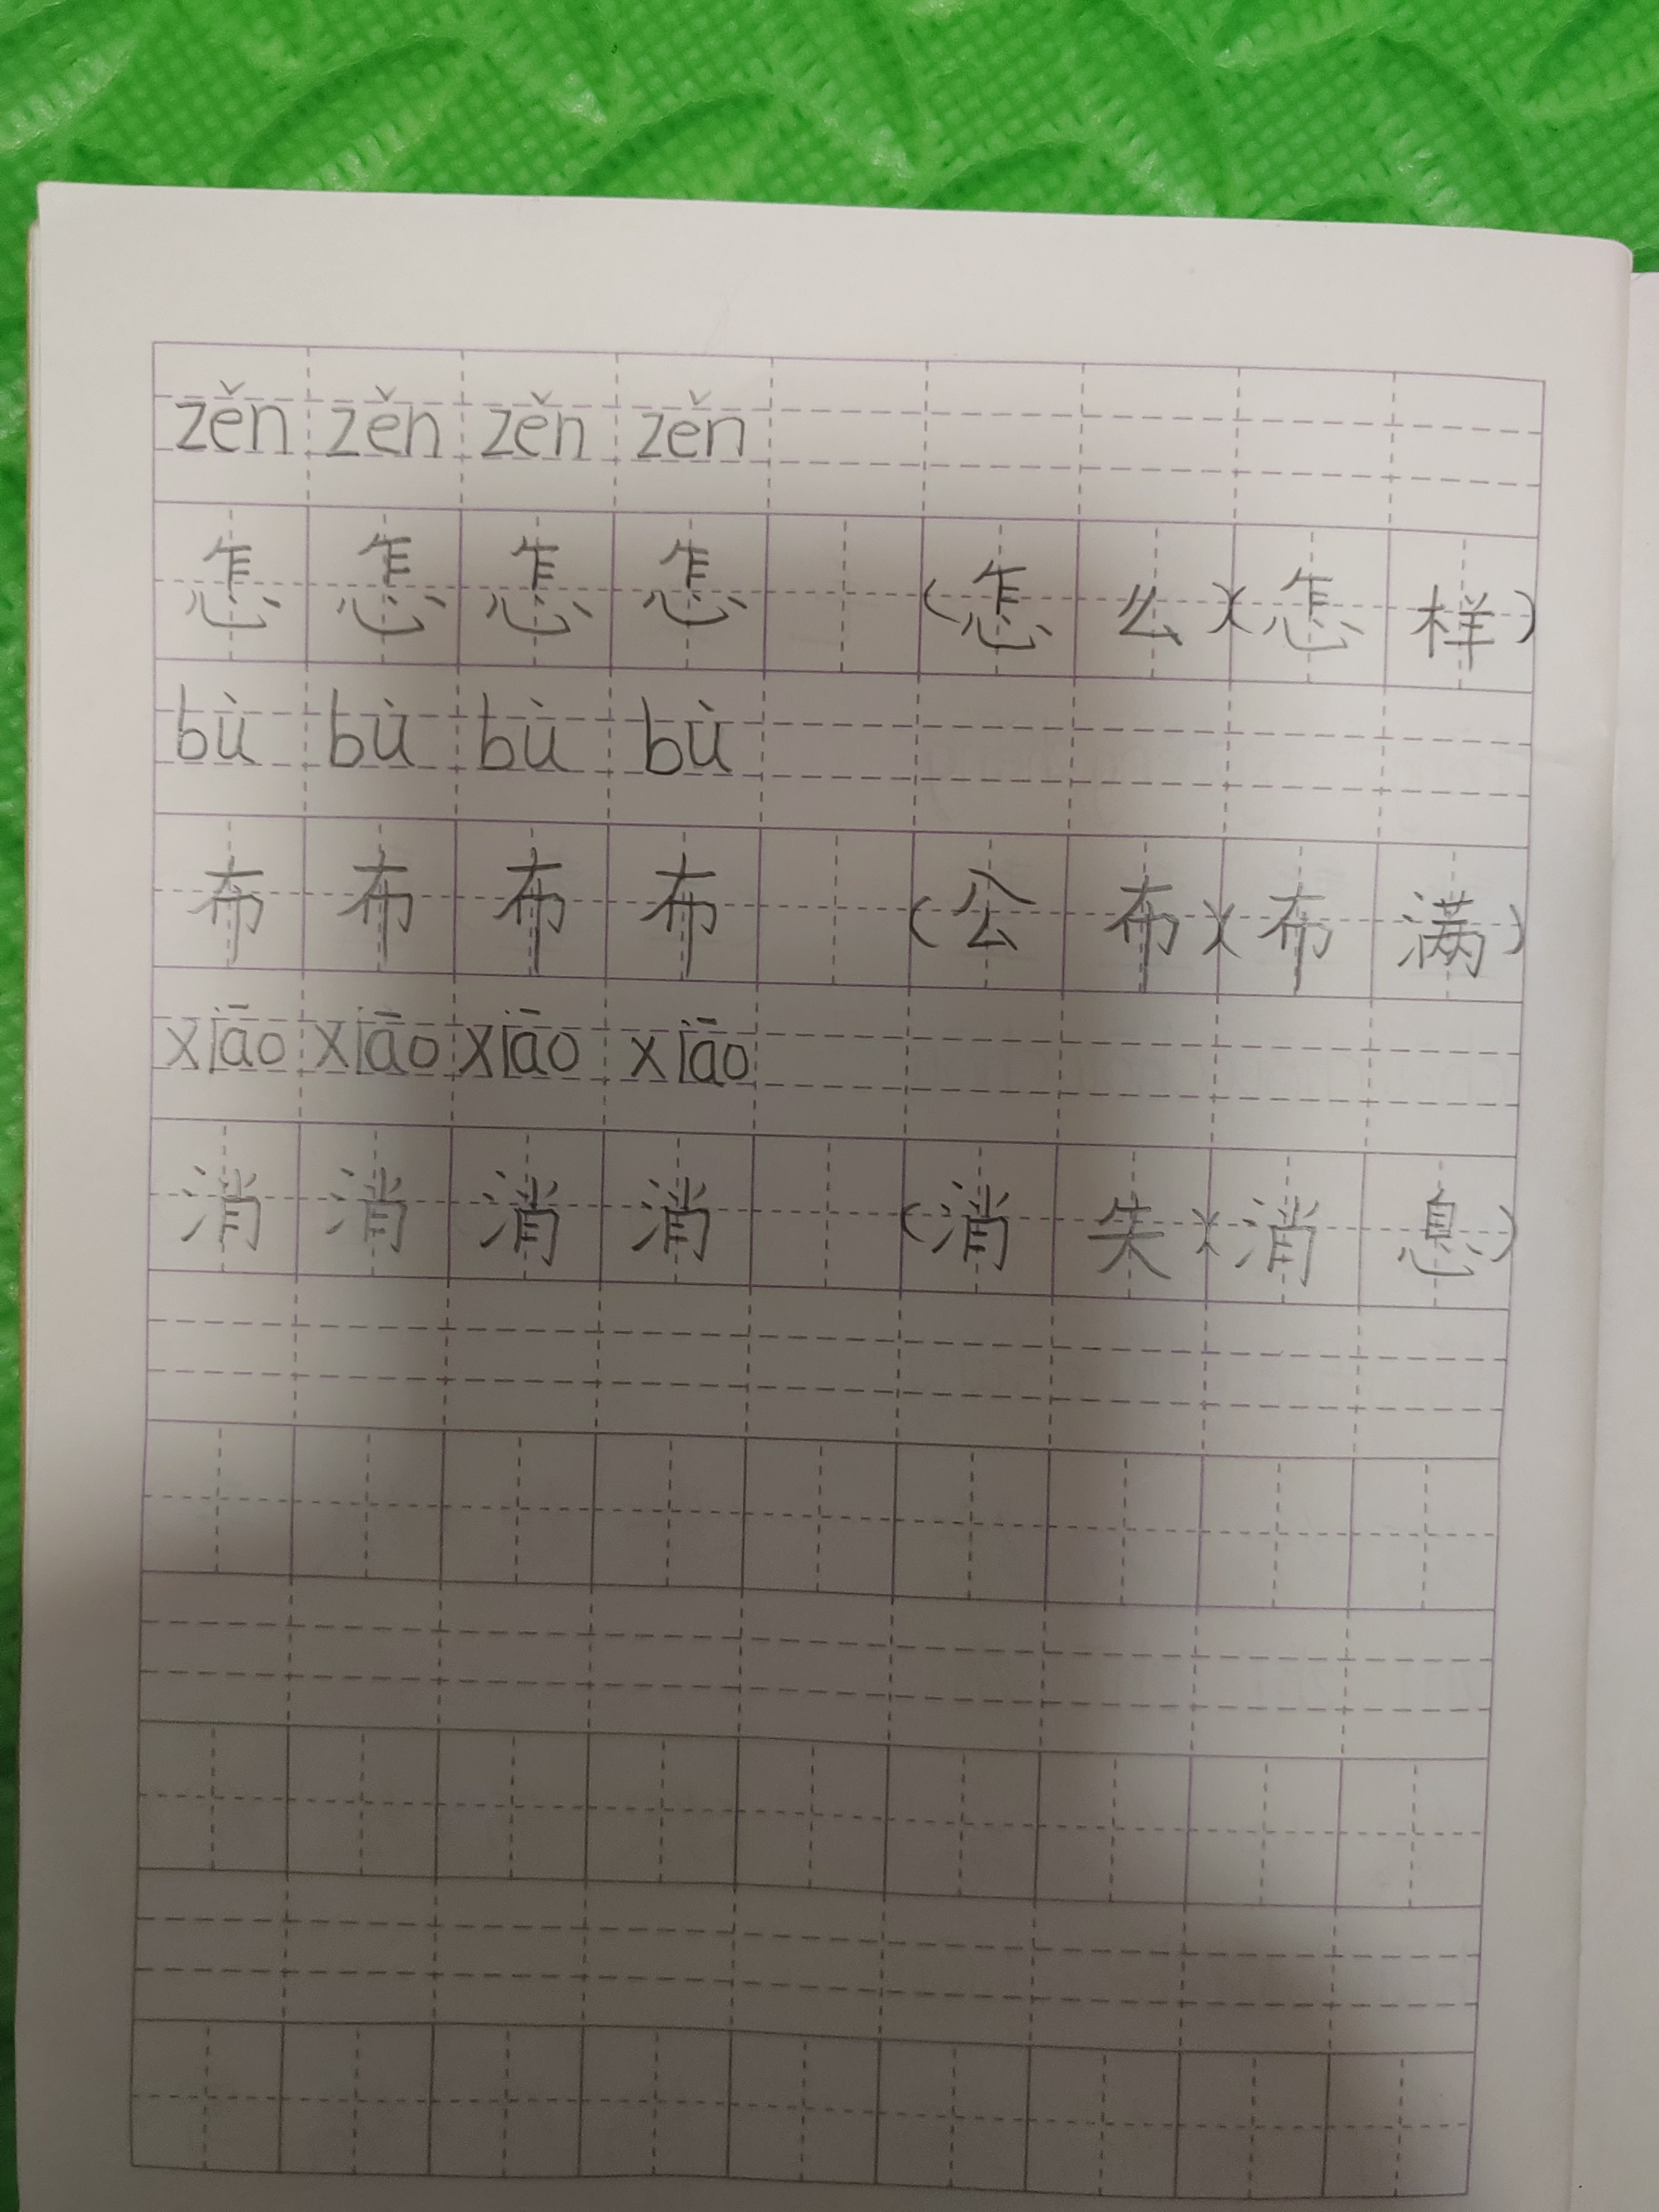 zěn zěn zěn zěn
怎 怎 怎 怎 (怎么)(怎样)
bù bù bù bù
布 布 布 布 (公布)(布满)
xiāo xiāo xiāo xiāo
消 消 消 消 (消失)(消息)